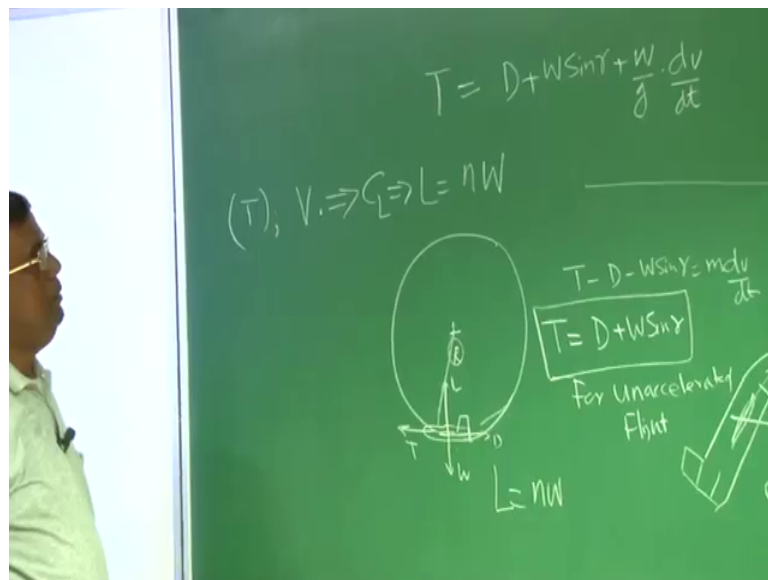 T = D + W Sin γ + W/g · dv/dt
(T), V. ⇒ CL ⇒ L = nW
T - D - W Sin γ = m dv/dt
T = D + W Sin γ
For Unaccelerated
Flight
R
L
T
D
W
L = nW